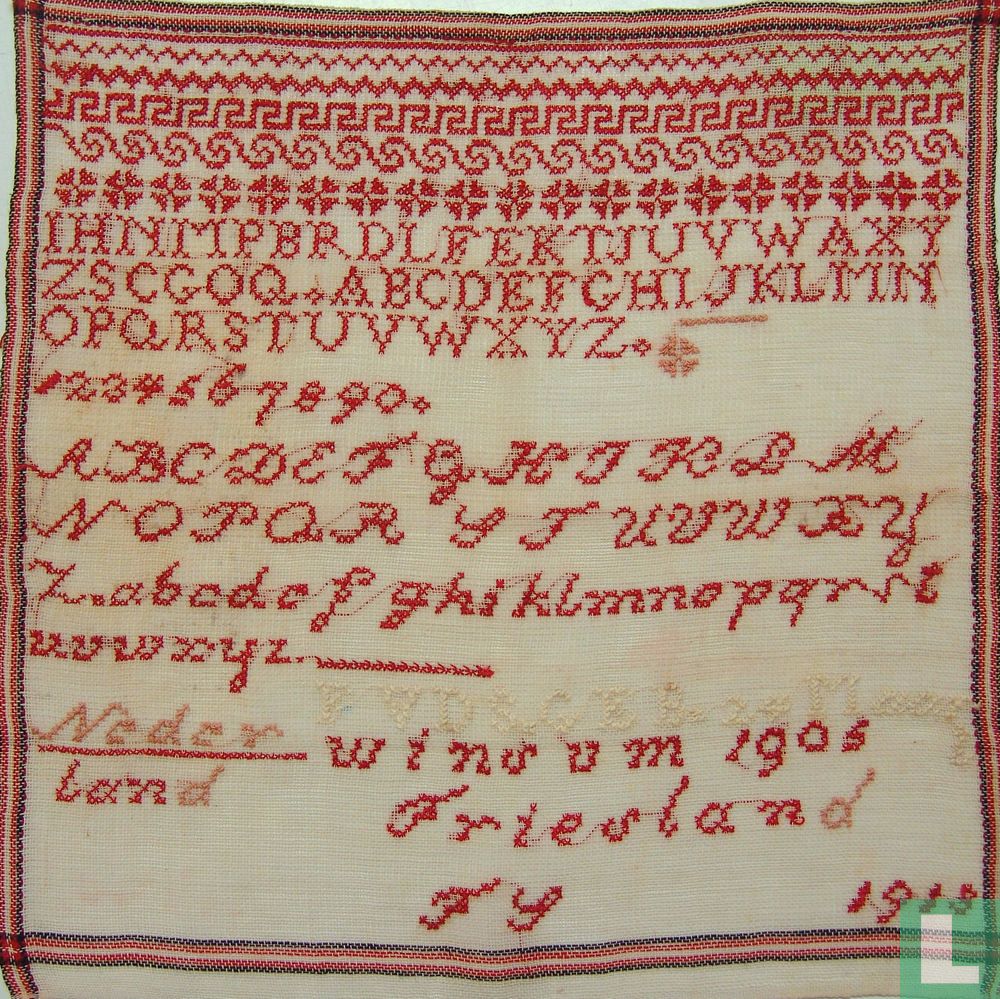 IHNMPBRDLFEKTJUVWAXY
ZSCGOQ.ABCDEFGHIJKLMN
OPQRSTUVWXYZ.
12234567890.
ABCDEFGHIKLM
NOPQRSTUVWXY
Z.abcdefghiklmnopqrst
uvwxyz.
Neder
land
Winsum 1905
Friesland
TS
L